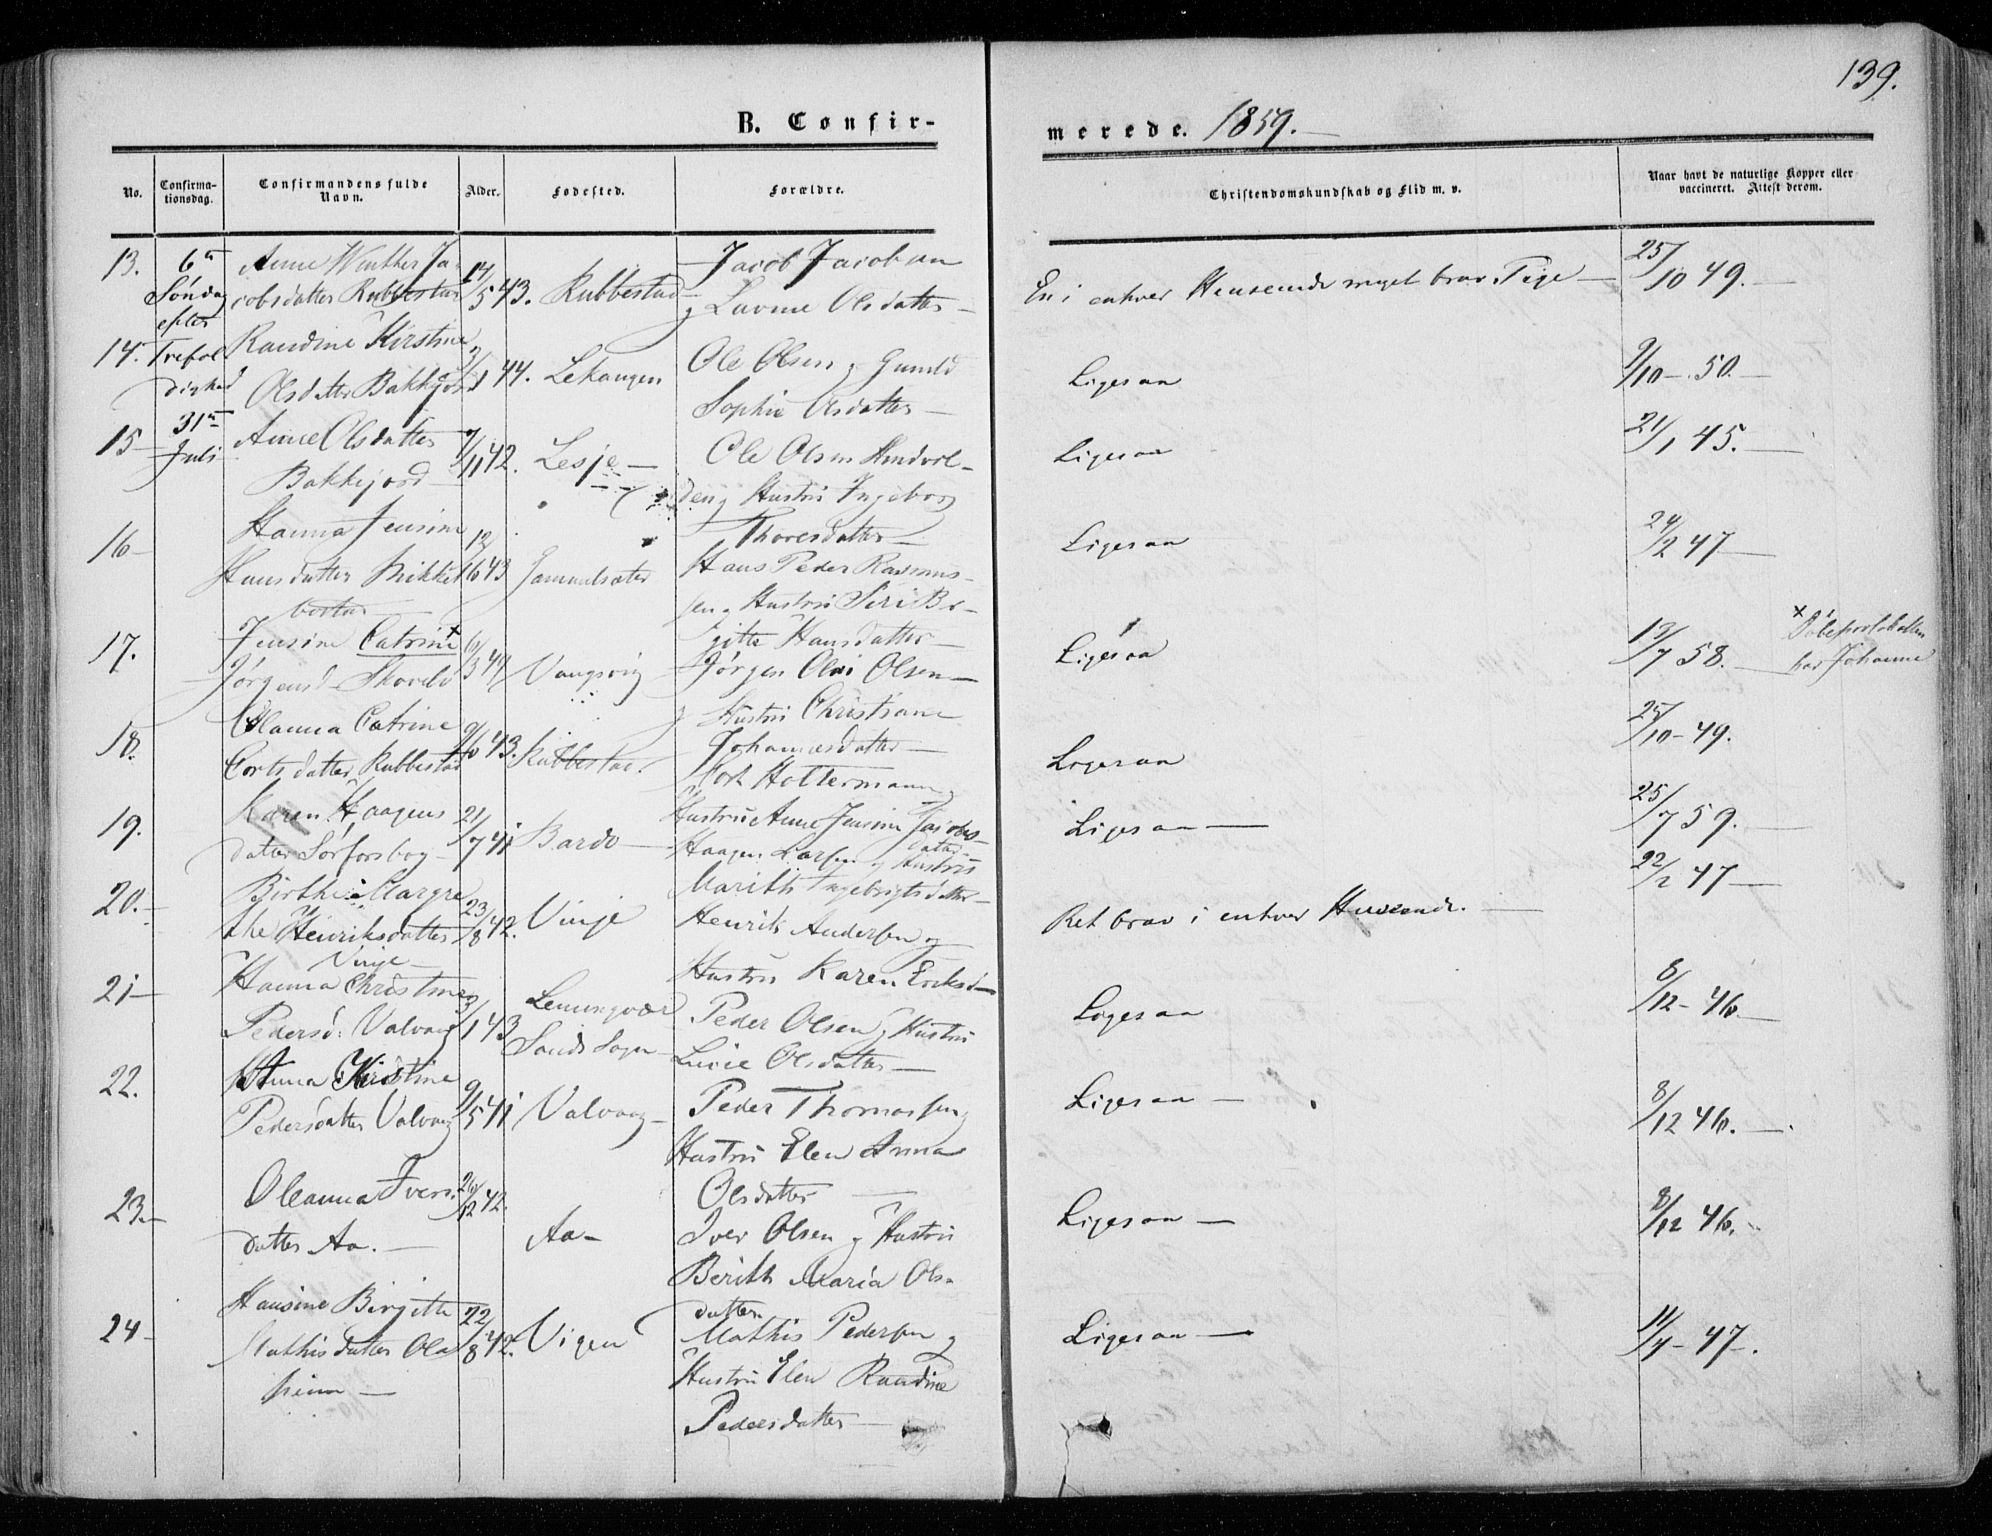 139.
B. Confir-
merede. 1859.
No.
Confirma-
tionsdag.
Confirmandens fulde
Navn.
Alder.
Fødested.
Forældre.
Christendomskundskab og Flid m. v.
Naar havt de naturlige Kopper eller
vaccineret. Attest derom.
6te
Søndag
efter
Trefol
dighed
31te
Juli
13. Anne Winther Ja-
cobsdatter Rubbestad 14/5 43. Rubbestad
Jacob Jacobsen
og Lavine Olsdatter
En i enhver Henseende meget brav Pige 25/10 49.
14. Randine Kirstine
Olsdatter Bakkejord 3/1 44. Lekangen
Ole Olsen og Gunild
Sophie Olsdatter
Ligesaa 9/10 50.
15 Anne Olsdatter
Bakkejord 7/11 42. Lesje
Ole Olsen
og Hustru Ingeborg
Thoresdatter
Ligesaa 21/1 45.
16 Hanna Jensine
Hansdatter Mikkel
bostad 12/6 43
Hans Peder Rasmus-
sen og Hustru Siri Bir-
gitte Hansdatter
Ligesaa 24/2 47
17. Jensine Catrine x
Jørgensd 6/3 44 Vangsvig
Jørgen Olai Olsen
og Hustru Christiane
Johannesdatter
Ligesaa 13/7 58.
x Døbeprotokollen
har Johanne
18. Olanna Catrine
Cortsdatter Rubbestad 9/10 43. Rubbestad.
Cort Holtermann og
Hustru Anne Jensine Jacobs-
datter
Ligesaa 25/10 49.
19. Karen Haagens
datter Sørforsbog 21/7 41 Bardo
Haagen Larsen og Hustru
Marith Ingebrigtsdatter
Ligesaa 25/7 59.
20. Birthe Margre
the Henriksdatter
Vinje 23/8 42. Vinje
Henrik Andersen og
Hustru Karen Eriksd
Ret brav i enhver Henseende. 22/2 47
21 Hanna Christine
Pedersd: Valvaag 3/1 43 Lemmingvær
Sands Sogn
Peder Olsen og Hustru
Lucie Olsdatter
Ligesaa 8/12 46
22. Anna Kirstine
Pedersdatter Valvaag 9/5 41 Valvaag
Peder Thomassen og
Hustru Elen Anna
Olsdatter
Ligesaa 8/12 46.
23. Oleanna Ivers
datter Aa. 26/12 42. Aa
Iver Olsen og Hustru
Berith Maria Ols-
datter
Ligesaa 8/12 46.
24 Hansine Birgitte
Mathisdatter Ola
heim 22/8 42. Vigen
Mathis Pedersen og
Hustru Elen Randine
Pedersdatter
Ligesaa 11/4 47.